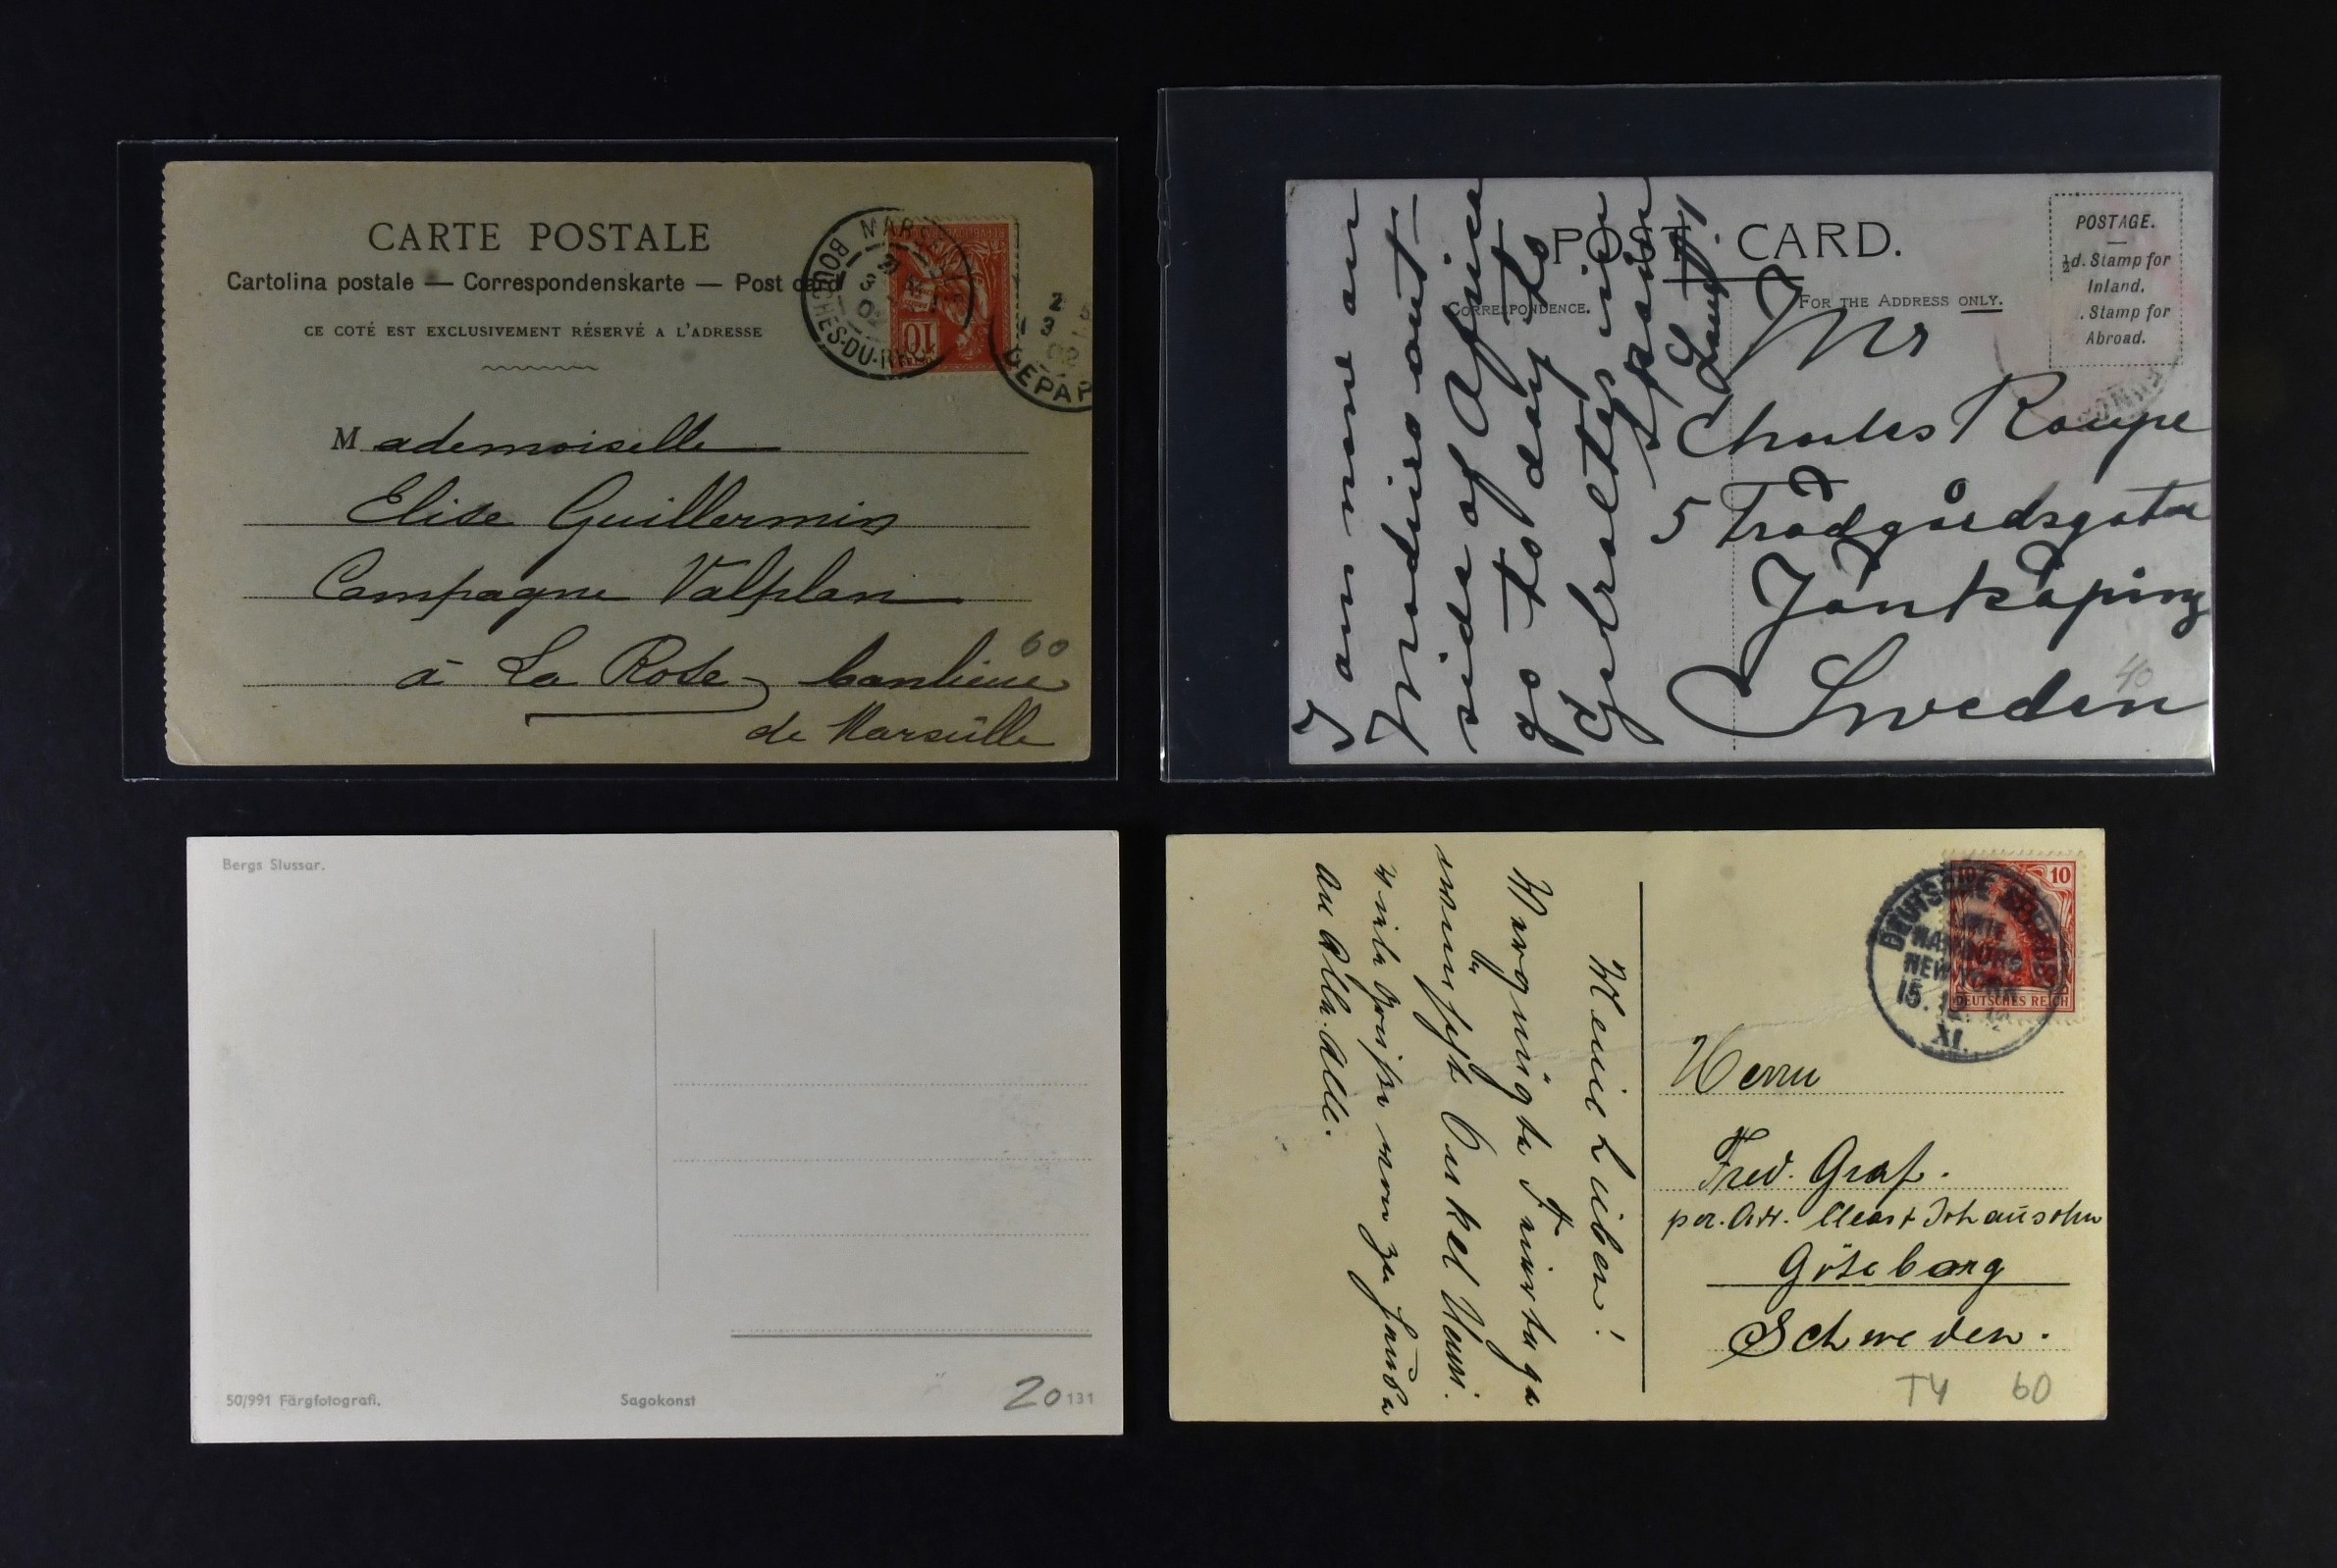 CARTE POSTALE
Cartolina postale — Correspondenskarte — Post card
CE COTÉ EST EXCLUSIVEMENT RÉSERVÉ A L'ADRESSE
MARSEILLE
BOUCHES-DU-RHONE
3
02
10
2
3
02
DEPAR
Mademoiselle
Elise Guillermin
Campagne Valplan
à La Rose banlieue
de Marseille
60
POST CARD.
CORRESPONDENCE.
FOR THE ADDRESS ONLY.
POSTAGE.
½d. Stamp for
Inland.
. Stamp for
Abroad.
I am now on
Madiera out-
side of Africa
go to day to
Gibraltar in
Spain
Mr
Charles Raupe
5 Trädgårdsgatan
Jönköping
Sweden
40
Bergs Slussar.
50/991 Färgfotografi.
Sagokonst
20
131
DEUTSCHE SEEPOST
LINIE
HAMBURG
NEW YORK
15.12.
XI.
10 10
DEUTSCHES REICH
Meine Lieben!
Vergnügte Feiertage
wünscht Onkel Hans.
Viele Grüsse von zu Hause
an Alle. Alle.
Herrn
Fred. Graf.
per. Adr. Johansohn
Göteborg
Schweden.
T4 60